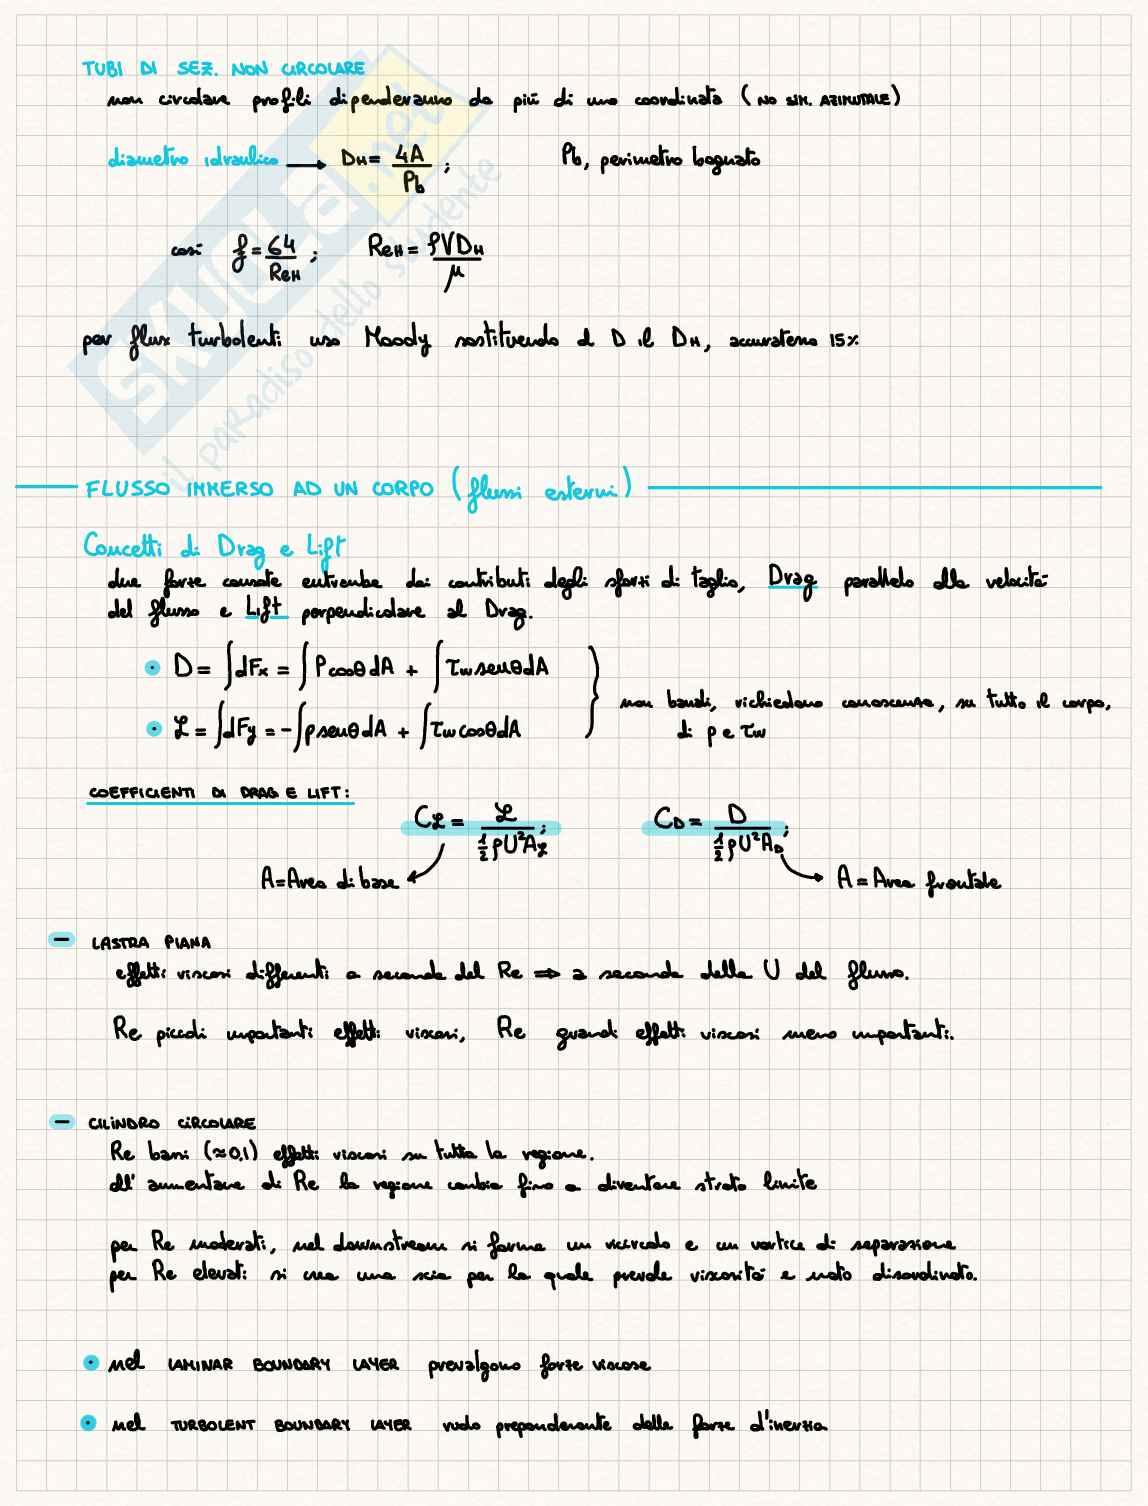 TUBI DI SEZ. NON CIRCOLARE
non circolare profili dipenderanno da più di una coordinata (NO SIM. AZIMUTALE)
diametro idraulico → DH = 4A / Pb ; Pb, perimetro bagnato
così f = 64 / ReH ; ReH = ρVDH / μ
per flux turbolenti uso Moody sostituendo al D il DH, accuratezza 15%
FLUSSO IMMERSO AD UN CORPO (flussi esterni)
Concetti di Drag e Lift
due forze causate entrambe dai contributi degli sforzi di taglio, Drag parallelo alla velocità
del flusso e Lift perpendicolare al Drag.
• D = ∫dFx = ∫PcosθdA + ∫τw senθdA
• ℒ = ∫dFy = -∫psenθdA + ∫τw cosθdA
non banali, richiedono conoscenza, su tutto il corpo,
di p e τw
COEFFICIENTI DI DRAG E LIFT:
Cℒ = ℒ / ½ρU²Aℒ ; CD = D / ½ρU²AD ;
A=Area di base A=Area frontale
– LASTRA PIANA
effetti viscosi differenti a seconda del Re ⇒ a seconda della U del flusso.
Re piccoli importanti effetti viscosi, Re grandi effetti viscosi meno importanti.
– CILINDRO CIRCOLARE
Re bassi (≈0,1) effetti viscosi su tutta la regione.
all'aumentare di Re la regione cambia fino a diventare strato limite
per Re moderati, nel downstream si forma un ricircolo e un vortice di separazione
per Re elevati si crea una scia per la quale prevale viscosità e moto disordinato.
• nel LAMINAR BOUNDARY LAYER prevalgono forze viscose
• nel TURBOLENT BOUNDARY LAYER ruolo preponderante delle forze d'inerzia
SKUOLA.net
il paradiso dello studente